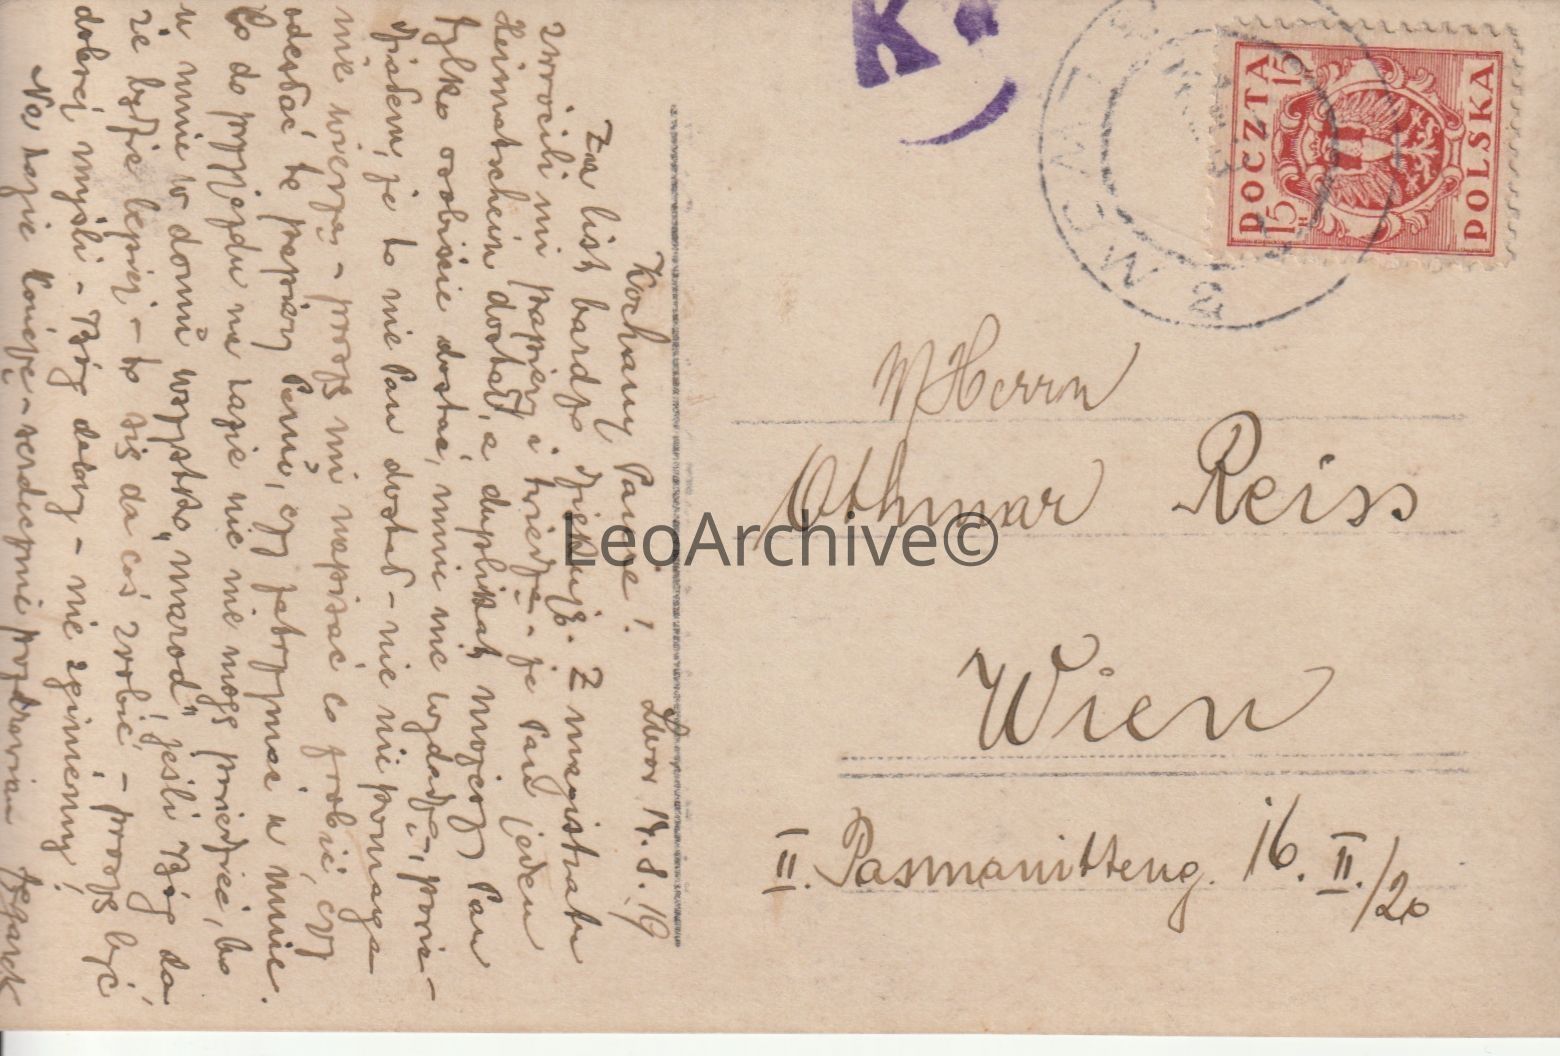 Kochany Panie! Lwów 14.8.19
Za list bardzo dziękuję. Z magistratu
zwrócili mi papiery i twierdzą - że Pan jeden
Heimatschein dostał, a duplikat mojego Pan
tylko osobiście dostać, mnie nie wydadzą, powie-
działem, że to nie Pan dostał - nic nie pomaga
nie wierzą - proszę mi napisać co zrobić, czy
odesłać te papiery Panu, czy zatrzymać u mnie.
Co do przyjazdu na razie nie nie mogę powiedzieć, bo
u mnie w domu wszystko "marod" jeśli Bóg da
że będzie lepiej - to się da coś zrobić - proszę być
dobrej myśli - Bóg dobry - nie zginiemy!
Na razie kończę - serdecznie pozdrawiam
K
POCZTA
POLSKA
15 15
H
Herrn
Othmar Reiss
Wien
II. Pasmanitteng. 16. II./20
LeoArchive©